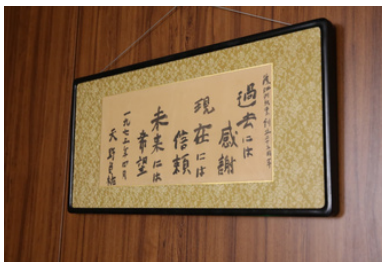 過去には
感謝
現在には
信頼
未来には
希望
天野貞祐